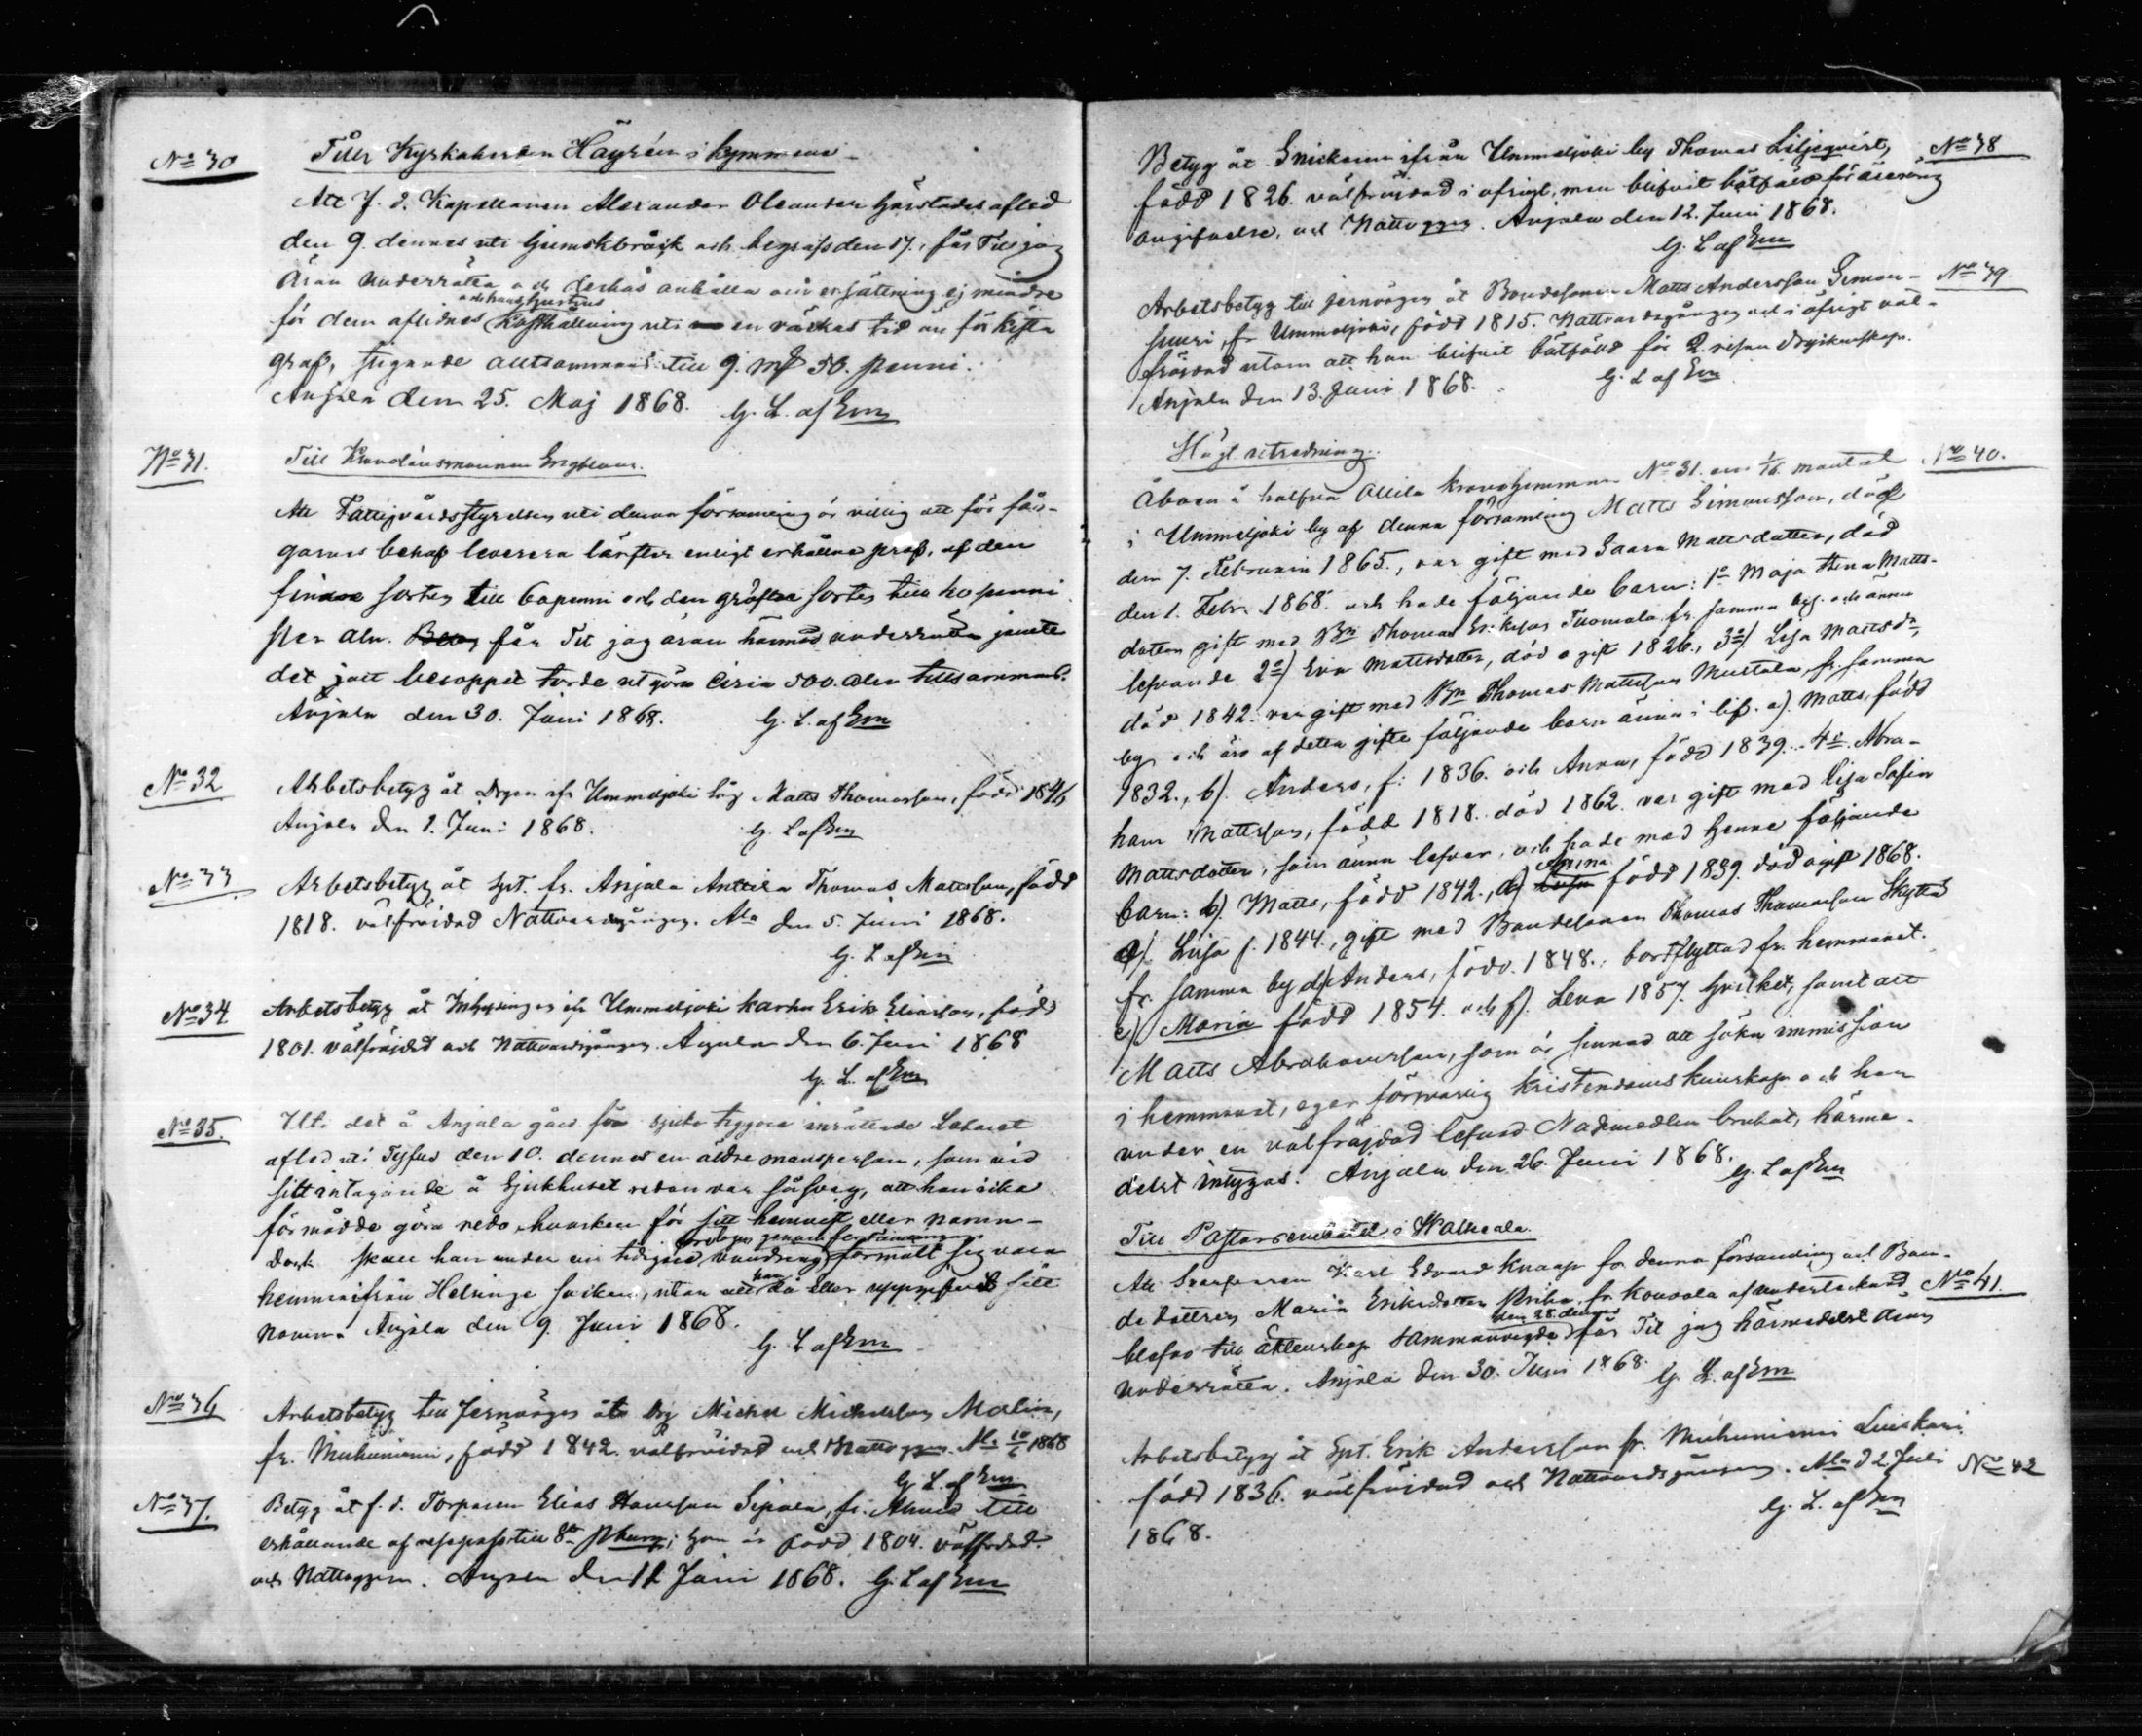 No 30
Till Kyrkoherden Häyrén i Kymmene
Att f. d. Kapellanen Alexander Oleander härstädes afled
den 9 dennes uti hjernskbråck och begrafs den 17, får Tit jag
äran underrätta och derhos anhålla om ersättning ej mindre
och hans hustrus
för dem aflidnes kosthållning uti en veckas tid än för kista
graf, stigande allt sammans till 9 mf 50 penni.
Anjala den 25 Maj 1868. G. L. af Em
No 31.
Till Kronolänsmannen Engblom.
Att Fattigvårdsstyrelsen uti denna församling är villig att för fån-
garnes behof leverera lärfter enligt erhållna prof, af den
finare sorten till 60 penni och den gröfre sorten till 40 penni
per aln. får Tit jag äran härmed underrätta jemte
det partiet torde utgöra circa 500 alnr tillsammans.
Anjala den 30. Juni 1868. G. L. af Em
No 32
Arbetsbetyg åt Drgen ifr Ummeljoki by Matts Thomasson, född 1846
Anjala den 1. Juni 1868. G. L af Em
No 33
Arbetsbetyg åt Spt. fr. Anjala Anttila Thomas Mattsson, född
1818. välfräjdad Nattvardsgången. Ala den 5. Juni 1868.
G. L af Em
No 34
Arbetsbetyg åt Inhysingen ifr Ummeljoki Karhu Erik Eliasson, född
1801. välfräjdad och Nattvardsgången. Anjala den 6. Juni 1868
G. L. af Em
No 35.
Uti det å Anjala gård för sjuka tiggare inrättade Lazaret
afled uti Tyfus den 10. dennes en äldre mansperson, som vid
sitt intagande å Sjukhuset redan var så svag, att han icke
förmådde göra redo hvarken för sitt hemvist eller namn-
dock skall han under en tidigare vandring genom församlingen förmält sig vara
hemma ifrån Helsinge socken, utan att han då eller uppgifvit sitt
namn. Anjala den 9. Juni 1868.
G. L af Em
No 36
Arbetsbetyg till Jernvägen åt Drg Michel Michelsson Malin,
fr. Muhniemi, född 1842. välfräjdad och Nattvggn. Ala 10/6 1868
G. L. af Em
No 37.
Betyg åt f. d. Torparen Elias Hansson Sipola, fr. Ahvio till
erhållande af respass till St Pburg; som är född 1804. välfrdad.
och Nattvggn. Anjala den 12 Juni 1868. G. L af Em
Betyg åt Snickaren ifrån Ummeljoki by Thomas Liljeqvist, No 38
född 1826. välfräjdad i öfrigt, men blifvit bötfäld för
angifvelse, och Nattvggn. Anjala den 12. Juni 1868.
G. L af Em
Arbetsbetyg till jernvägen åt Bondesonen Matts Andersson Simon- No 39
suuri, fr Ummeljoki, född 1815. Nattvardsgången och i öfrigt väl-
fräjdad utom att han blifvit bötfäld för 2. resan dryckenskap.
Anjala den 13. Juni 1868. G. L af Em
Högl utredning.
Åboen å halfva Ollila kronohemman No 31. om 1/16 mantal No 40.
i Ummeljoki by af denna församling Matts Simonsson, död
den 7. Februari 1865., var gift med Saara Mattsdotter, död
den 1. Febr. 1868. och hade följande barn: 1o Maja Stina Matts-
dotter gift med Bn Thomas Eriksson Tuomala fr. samma by. och ännu
lefvande 2o) Eva Mattsdotter, död o gift 1826., 3o) Lisa Mattsdr,
död 1842. var gift med Bn Thomas Mattsson Mustala, fr. samma
by och äro af detta gifte följande barn ännu i lif. a). Matts, född
1832., b). Anders, f: 1836. och Anna, född 1839. - 4o. Abra-
ham Mattsson, född 1818. död 1862. var gift med Lisa Sofia
Mattsdotter, som ännu lefver, och hade med henne följande
barn: b). Matts, född 1842., a) Anna född 1839. död ogift 1868.
c). Lisa f. 1844., gift med Bondesonen Thomas Thomasson Skyttä
fr. samma by d). Anders, född. 1848., bortflyttad fr. hemmanet.
e) Maria född 1854. och f). Leva 1857. hvilket, samt att
Matts Abrahamsson, som är sinnad att söka immission
i hemmanet, eger försvarlig kristendoms kunskap och har
under en välfräjdad lefnad Nådemedlen brukat, härme-
delst intygas. Anjala den 26. Juni 1868. G. L af Em
Till Pastorsembetet i Walkeala.
Att Karl Edvard Knaap fr denna församling och Bon-
dedottren Maria Eriksdotter fr. Kouvola af undertecknad No 41.
den 28. dennes
blefvo till äktenskap sammanvigda får Tit jag härmedelst äran
underrätta. Anjala den 30. Juni 1868. G. L. af Em
Arbetsbetyg åt Spt. Erik Andersson fr. Muhniemi Luiskari
född 1836. välfräjdad och Nattvardsgången. Ala d 2 Juli No 42
1868. G. L. af Em